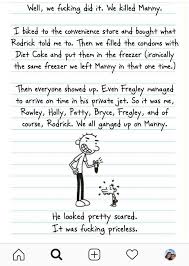 Well, we fucking did it. We killed Manny.
I biked to the convenience store and bought what
Rodrick told me to. Then we filled the condoms with
Diet Coke and put them in the freezer (ironically
the same freezer we left Manny in that one time.)
Then everyone showed up. Even Fregley managed
to arrive on time in his private jet. So it was me,
Rowley, Holly, Patty, Bryce, Fregley, and of
course, Rodrick. We all ganged up on Manny.
He looked pretty scared.
It was fucking priceless.